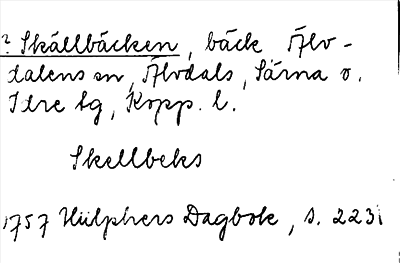 ? Skällbäcken, bäck Älv-
dalens sn, Älvdals, Särna o.
Idre tg, Kopp. l.
Skellbeks
1757 Hülphers Dagbok, s. 223